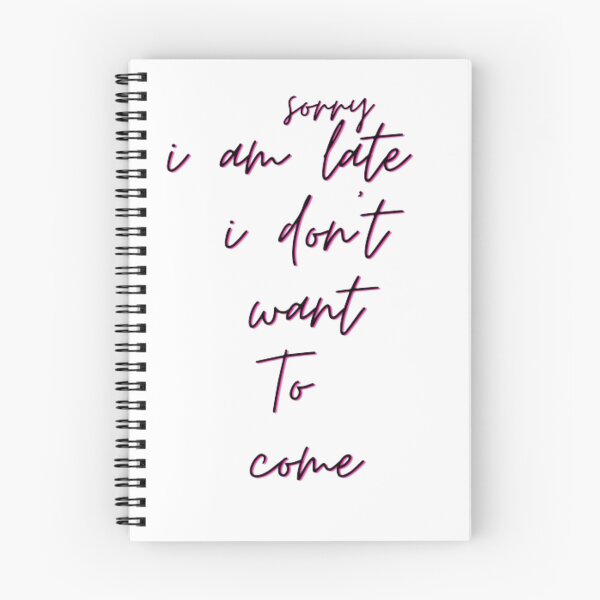 sorry
i am late
i don't
want
To
come